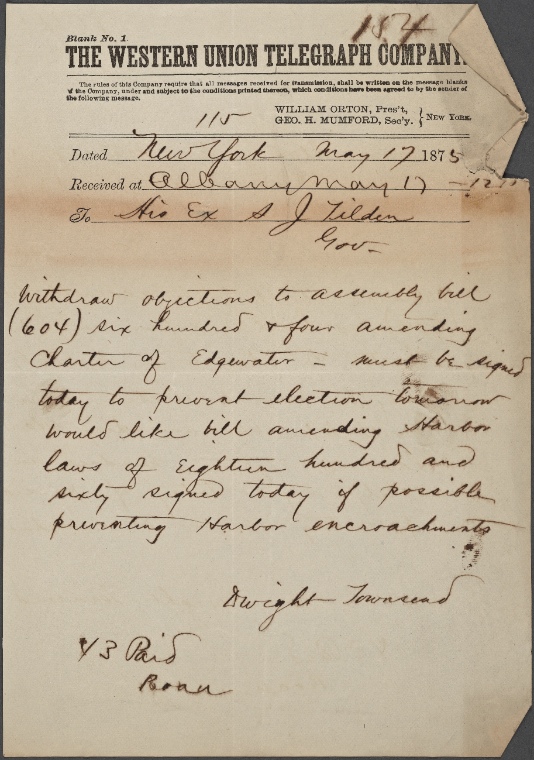 184
Blank No. 1.
THE WESTERN UNION TELEGRAPH COMPANY.
The rules of this Company require that all messages received for transmission, shall be written on the message blanks
of the Company, under and subject to the conditions printed thereon, which conditions have been agreed to by the sender of
the following message.
WILLIAM ORTON, Pres't,
GEO. H. MUMFORD, Sec'y. } NEW YORK.
115
Dated New York May 17 1875
Received at Albany May 17 - 12
To His Ex S J Tilden
Gov-
Withdraw objections to assembly bill
(604) six hundred & four amending
Charter of Edgewater - must be signed
today to prevent election tomorrow
would like bill amending Harbor
laws of Eighteen hundred and
sixty signed today if possible
preventing Harbor encroachments
Dwight Townsend
43 Paid